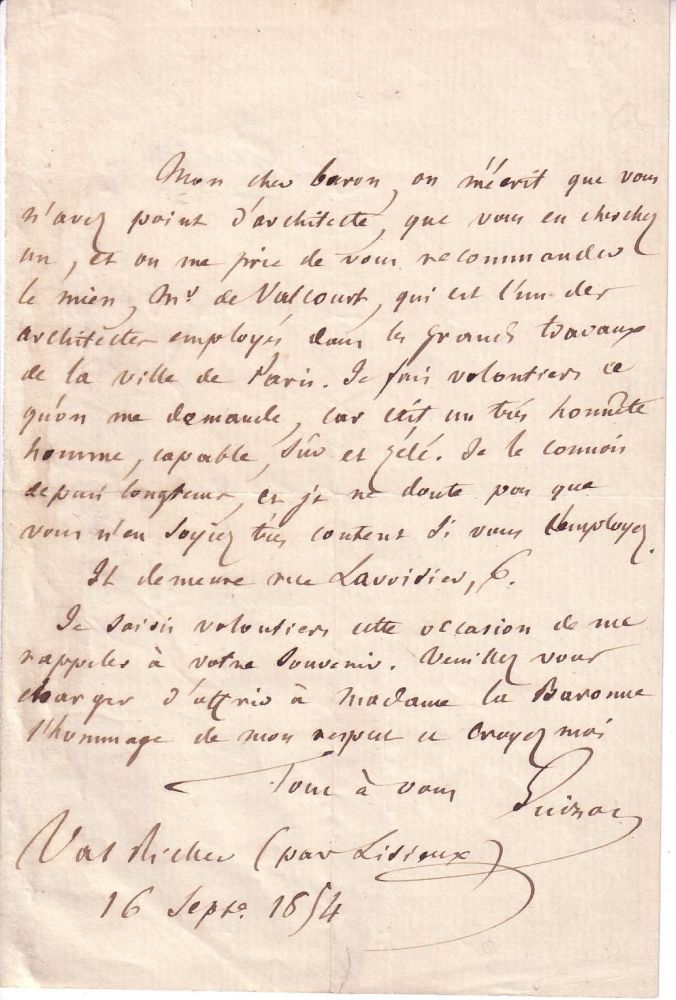 Mon cher baron, on m'écrit que vous
n'avez point d'architecte, que vous en cherchez
un, et on me prie de vous recommander
le mien, Mr. de Valcourt, qui est l'un des
architectes employés dans les grands travaux
de la ville de Paris. Je fais volontiers ce
qu'on me demande, car c'est un très honnête
homme, capable, sûr et zélé. Je le connois
depuis longtems, et je ne doute pas que
vous n'en soyiez très content si vous l'employez.
Il demeure rue Lavoisier, 6.
Je saisis volontiers cette occasion de me
rappeler à votre souvenir. Veuillez vous
charger d'offrir à Madame la Baronne
l'hommage de mon respect et croyez moi
Tout à vous Guizot
Val Richer (par Lisieux)
16 Septe. 1854